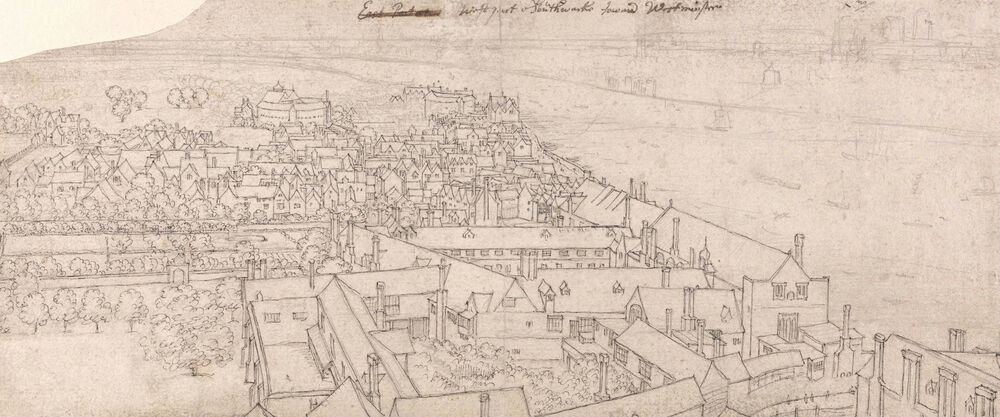 East Part o West part o Southwarke toward Westminster